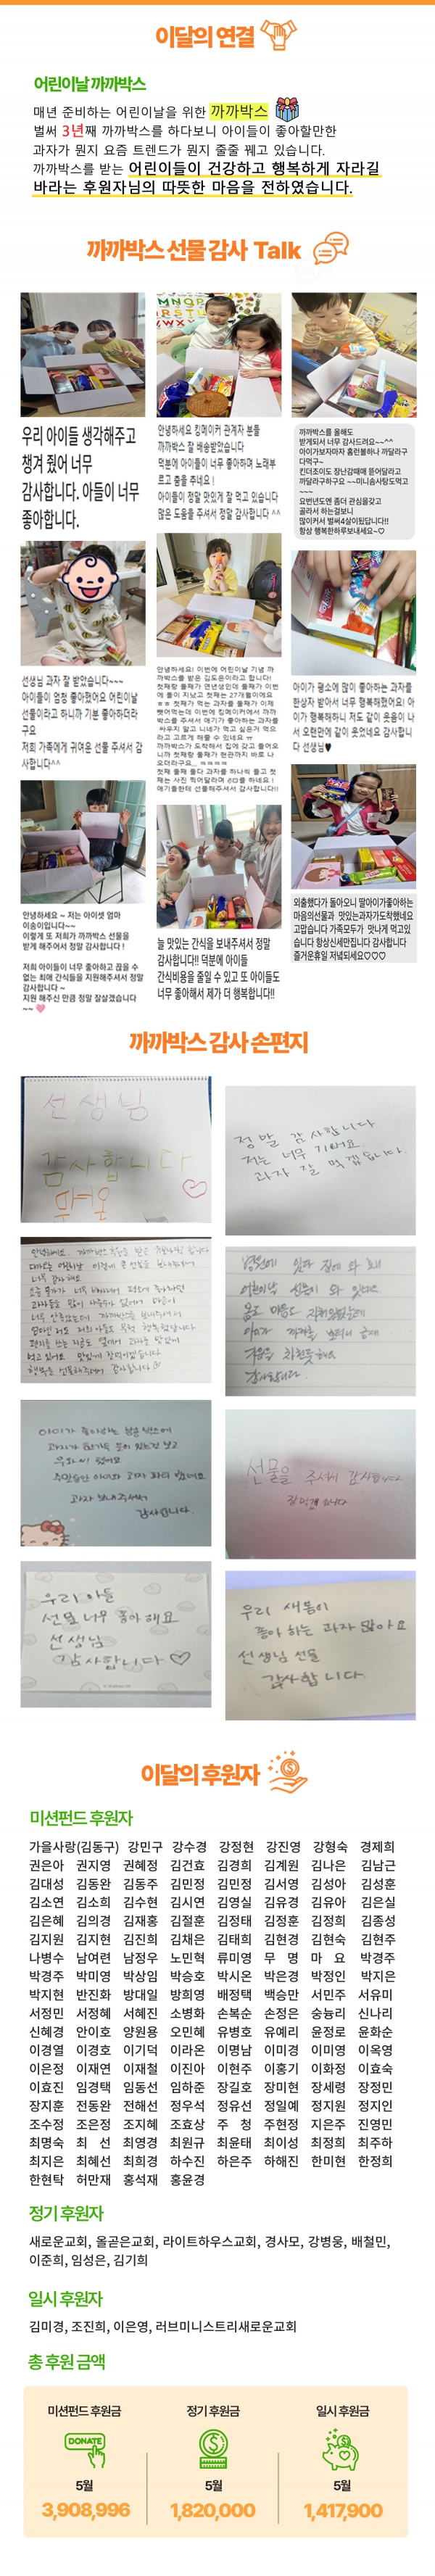 이달의 연결
어린이날 까까박스
매년 준비하는 어린이날을 위한 까까박스
벌써 3년째 까까박스를 하다보니 아이들이 좋아할만한
과자가 뭔지 요즘 트렌드가 뭔지 줄줄 꿰고 있습니다.
까까박스를 받는 어린이들이 건강하고 행복하게 자라길
바라는 후원자님의 따뜻한 마음을 전하였습니다.
까까박스 선물 감사 Talk
우리 아이들 생각해주고
챙겨 줬어 너무
감사합니다. 아들이 너무
좋아합니다.
안녕하세요 킹메이커 관계자 분들
까까박스 잘 배송받았습니다
덕분에 아이들이 너무 좋아하며 노래부
르고 춤을 추네요 !
아이들이 정말 맛있게 잘 먹고 있습니다
많은 도움을 주셔서 정말 감사합니다 ^^
까까박스를 올해도
받게되서 너무 감사드려요~~^^
아이가보자마자 홈런볼하나 까달라구
다먹구~
킨더조이도 장난감때매 뜯어달라고
까달라구하구요 ~~미니솜사탕도먹고
~~~
요번년도엔 좀더 관심을갖고
골라서 하는걸보니
많이커서 벌써4살이됬답니다!!
항상 행복한하루보내세요~♡
선생님 과자 잘 받았습니다~~~
아이들이 엄청 좋아했어요 어린이날
선물이라고 하니까 기분 좋아하더라
구요
저희 가족에게 귀여운 선물 주셔서 감
사합니다^^
안녕하세요! 이번에 어린이날 기념 까
까박스를 받은 김도은이라고 합니다!
첫째랑 둘째가 연년생인데 둘째가 이번
에 돌이 지났고 첫째는 27개월이에요
ㅎㅎ 첫째가 먹는 과자를 둘째가 이제
뺏어먹는데 이번에 킹메이커에서 까까
박스를 주셔서 얘기가 좋아하는 과자를
싸우지 말고 니네가 먹고 싶은거 먹으
라고 고르게 해줄 수 있네요 ㅠ
까까박스가 도착해서 집에 갖고 들어오
니까 첫째랑 둘째가 현관까지 바로 나
오더라구요_ ㅋㅋㅋㅋ
첫째 둘째 둘다 과자를 하나씩 들고 첫
째는 사진 찍어달라며 포즈를 하네요 !
애기들한테 선물해주셔서 감사합니다!!
아이가 평소에 많이 좋아하는 과자를
한상자 받아서 너무 행복해했어요! 아
이가 행복해하니 저도 같이 웃음이 나
서 오랜만에 같이 웃었네요 감사합니
다 선생님♥
안녕하세요 ~ 저는 아이셋 엄마
이송이입니다~~
이렇게 또 저희가 까까박스 선물을
받게 해주어서 정말 감사합니다 !
저희 아이들이 너무 좋아하고 끊을 수
없는 최애 간식들을 지원해주셔서 정말
감사합니다 ~
지원 해주신 만큼 정말 잘살겠습니다
~~
늘 맛있는 간식을 보내주셔서 정말
감사합니다!! 덕분에 아이들
간식비용을 줄일 수 있고 또 아이들도
너무 좋아해서 제가 더 행복합니다!!
외출했다가 돌아오니 딸아이가좋아하는
마음의선물과 맛있는과자가도착했네요
고맙습니다 가족모두가 맛나게 먹고있
습니다 항상신세만집니다 감사합니다
즐거운휴일 저녁되세요♡♡♡
까까박스 감사 손편지
선생님
감사합니다
정말 감사합니다
저는 너무 기뻐요.
과자 잘 먹겠습니다.
선물을 주셔서 감사합니다
잘 먹겠습니다
우리 아들
선물 너무 좋아해요
선생님
감사합니다 ♡
우리 새봄이
좋아 하는 과자 많아요
선생님 선물
감사합니다
이달의 후원자
미션펀드 후원자
가을사랑(김동구) 강민구 강수경 강정현 강진영 강형숙 경제희
권은아 권지영 권혜정 김건효 김경희 김계원 김나은 김남근
김대성 김동완 김동주 김민정 김민정 김서영 김성아 김성훈
김소연 김소희 김수현 김시연 김영실 김유경 김유아 김은실
김은혜 김의경 김재홍 김절훈 김정태 김정훈 김정희 김종성
김지원 김지현 김진희 김채은 김태희 김현경 김현숙 김현주
나병수 남여련 남정우 노민혁 류미영 무 명 마 요 박경주
박경주 박미영 박상임 박승호 박시온 박은경 박정인 박지은
박지현 반진화 방대일 방희영 배정택 백승만 서민주 서유미
서정민 서정혜 서혜진 소병화 손복순 손정은 숭늉리 신나리
신혜경 안이호 양원용 오민혜 유병호 유예리 윤정로 윤화순
이경열 이경호 이기덕 이라온 이명남 이미경 이미영 이옥영
이은정 이재연 이재철 이진아 이현주 이홍기 이화정 이효숙
이효진 임경택 임동선 임하준 장길호 장미현 장세령 장정민
장지훈 전동완 전해선 정우석 정유선 정일예 정지원 정지인
조수정 조은정 조지혜 조효상 주 청 주현정 지은주 진영민
최명숙 최 선 최영경 최원규 최윤태 최이성 최정희 최주하
최지은 최혜선 최희경 하수진 하은주 하해진 한미현 한정희
한현탁 허만재 홍석재 홍윤경
정기 후원자
새로운교회, 올곧은교회, 라이트하우스교회, 경사모, 강병웅, 배철민,
이준희, 임성은, 김기희
일시 후원자
김미경, 조진희, 이은영, 러브미니스트리새로운교회
총 후원 금액
미션펀드 후원금 정기 후원금 일시 후원금
DONATE
5월 5월 5월
3,908,996 1,820,000 1,417,900